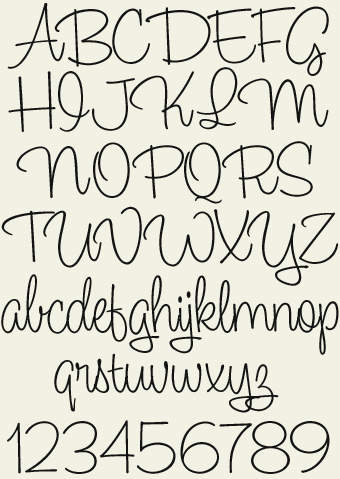 ABCDEFG
HIJKLM
NOPQRS
TUVWXYZ
abcdefghijklmnop
qrstuvwxyz
123456789